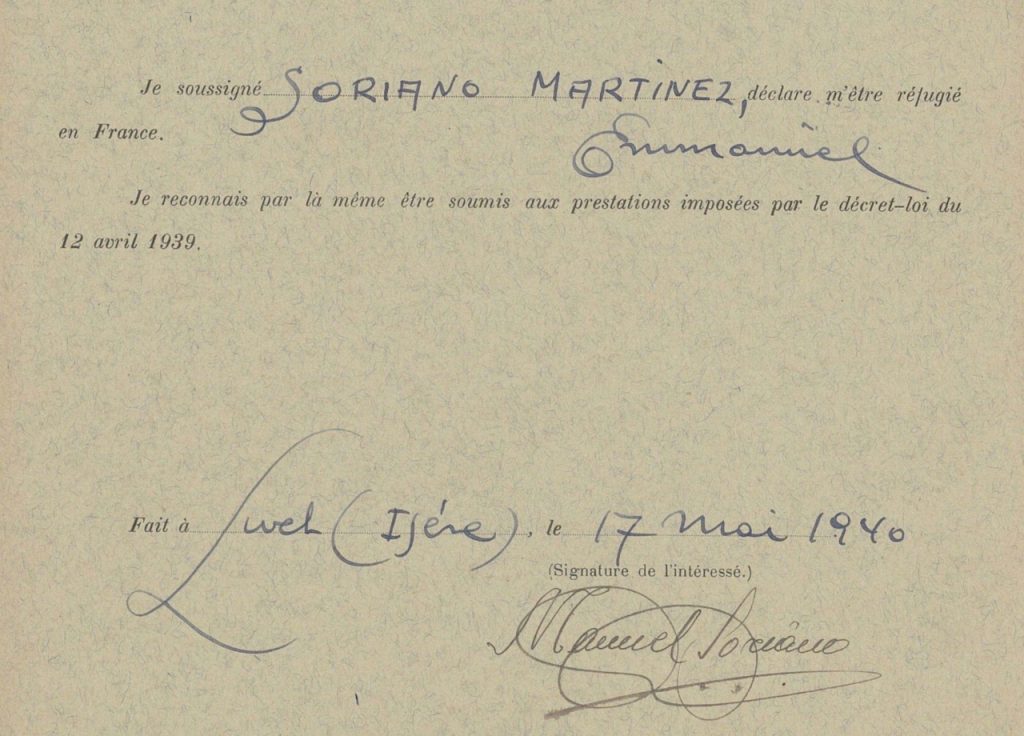 Je soussigné SORIANO MARTINEZ, déclare m'être réfugié
en France. Emmanuel
Je reconnais par là même être soumis aux prestations imposées par le décret-loi du
12 avril 1939.
Fait à Livet (Isére), le 17 Mai 1940
(Signature de l'intéressé.)
Manuel Soriano